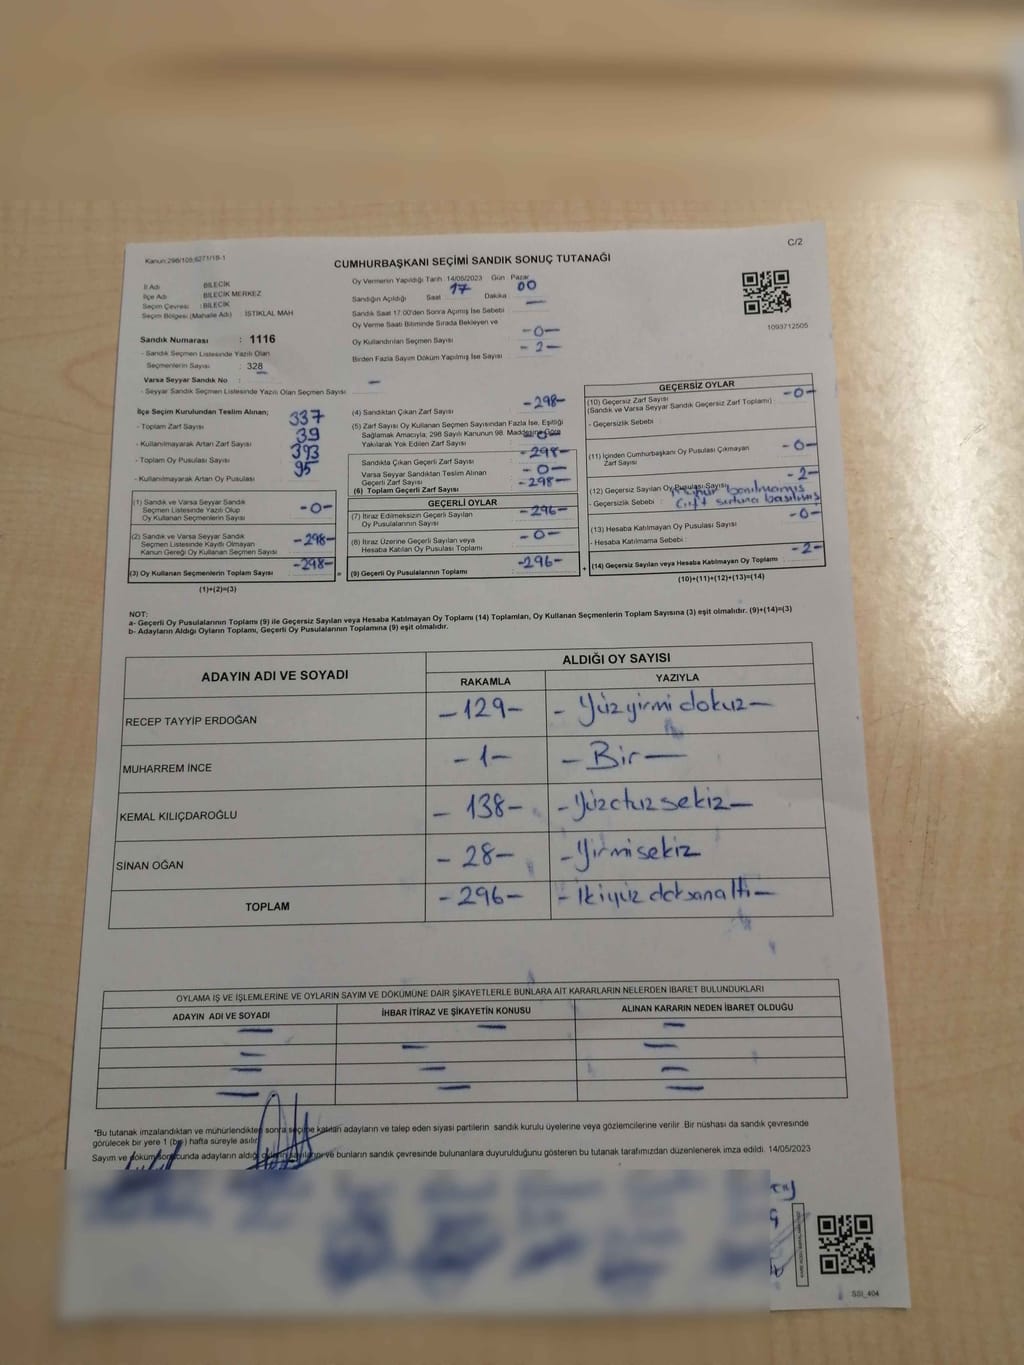 C/2
Kanun:298/108;6271/18-1
CUMHURBAŞKANI SEÇİMİ SANDIK SONUÇ TUTANAĞI
İl Adı : BİLECİK
İlçe Adı : BİLECİK MERKEZ
Seçim Çevresi : BİLECİK
Seçim Bölgesi (Mahalle Adı) : İSTİKLAL MAH
Oy Vermenin Yapıldığı Tarih : 14/05/2023 Gün Pazar
Sandığın Açıldığı Saat 17 Dakika 00
Sandık Saat 17:00'den Sonra Açımış İse Sebebi —
Oy Verme Saati Bitiminde Sırada Bekleyen ve
Oy Kullandırılan Seçmen Sayısı -0-
Birden Fazla Sayım Döküm Yapılmış İse Sayısı - 2-
1093712505
Sandık Numarası : 1116
- Sandık Seçmen Listesinde Yazılı Olan
Seçmenlerin Sayısı : 328
Varsa Seyyar Sandık No : —
- Seyyar Sandık Seçmen Listesinde Yazılı Olan Seçmen Sayısı
İlçe Seçim Kurulundan Teslim Alınan;
- Toplam Zarf Sayısı 337
- Kullanılmayarak Artan Zarf Sayısı 39
- Toplam Oy Pusulası Sayısı 393
- Kullanılmayarak Artan Oy Pusulası 95
(1) Sandık ve Varsa Seyyar Sandık
Seçmen Listesinde Yazılı Olup
Oy Kullanan Seçmenlerin Sayısı -0-
(2) Sandık ve Varsa Seyyar Sandık
Seçmen Listesinde Kayıtlı Olmayan
Kanun Gereği Oy Kullanan Seçmen Sayısı -298-
(3) Oy Kullanan Seçmenlerin Toplam Sayısı -298-
(1)+(2)=(3)
(4) Sandıktan Çıkan Zarf Sayısı -298-
(5) Zarf Sayısı Oy Kullanan Seçmen Sayısından Fazla İse, Eşitliği
Sağlamak Amacıyla, 298 Sayılı Kanunun 98. Maddesine Göre
Yakılarak Yok Edilen Zarf Sayısı -0-
Sandıkta Çıkan Geçerli Zarf Sayısı -298-
Varsa Seyyar Sandıktan Teslim Alınan
Geçerli Zarf Sayısı - 0-
(6) Toplam Geçerli Zarf Sayısı -298-
GEÇERLİ OYLAR
(7) İtiraz Edilmeksizin Geçerli Sayılan
Oy Pusulalarının Sayısı -296-
(8) İtiraz Üzerine Geçerli Sayılan veya
Hesaba Katılan Oy Pusulası Toplamı - 0-
(9) Geçerli Oy Pusulalarının Toplamı -296-
GEÇERSİZ OYLAR
(10) Geçersiz Zarf Sayısı -0-
(Sandık ve Varsa Seyyar Sandık Geçersiz Zarf Toplamı)
- Geçersizlik Sebebi :
(11) İçinden Cumhurbaşkanı Oy Pusulası Çıkmayan
Zarf Sayısı -0-
(12) Geçersiz Sayılan Oy Pusulası Sayısı -2-
- Geçersizlik Sebebi : Mühür basılmamış
Çift sırtına basılmış
(13) Hesaba Katılmayan Oy Pusulası Sayısı -0-
- Hesaba Katılmama Sebebi :
(14) Geçersiz Sayılan veya Hesaba Katılmayan Oy Toplamı -2-
(10)+(11)+(12)+(13)=(14)
NOT:
a- Geçerli Oy Pusulalarının Toplamı (9) ile Geçersiz Sayılan veya Hesaba Katılmayan Oy Toplamı (14) Toplamları, Oy Kullanan Seçmenlerin Toplam Sayısına (3) eşit olmalıdır. (9)+(14)=(3)
b- Adayların Aldığı Oyların Toplamı, Geçerli Oy Pusulalarının Toplamına (9) eşit olmalıdır.
ADAYIN ADI VE SOYADI ALDIĞI OY SAYISI
RAKAMLA YAZIYLA
RECEP TAYYİP ERDOĞAN -129- - Yüzyirmi dokuz-
MUHARREM İNCE -1- - Bir -
KEMAL KILIÇDAROĞLU - 138- - Yüzotuzsekiz-
SİNAN OĞAN - 28- - Yirmisekiz
TOPLAM -296- - İkiyüz doksanaltı-
OYLAMA İŞ VE İŞLEMLERİNE VE OYLARIN SAYIM VE DÖKÜMÜNE DAİR ŞİKAYETLERLE BUNLARA AİT KARARLARIN NELERDEN İBARET BULUNDUKLARI
ADAYIN ADI VE SOYADI İHBAR İTİRAZ VE ŞİKAYETİN KONUSU ALINAN KARARIN NEDEN İBARET OLDUĞU
*Bu tutanak imzalandıktan ve mühürlendikten sonra seçime katılan adayların ve talep eden siyasi partilerin sandık kurulu üyelerine veya gözlemcilerine verilir. Bir nüshası da sandık çevresinde
görülecek bir yere 1 (bir) hafta süreyle asılır.
Sayım ve döküm sonucunda adayların aldığı oyların sayılarının ve bunların sandık çevresinde bulunanlara duyurulduğunu gösteren bu tutanak tarafımızdan düzenlenerek imza edildi. 14/05/2023
SSI_404